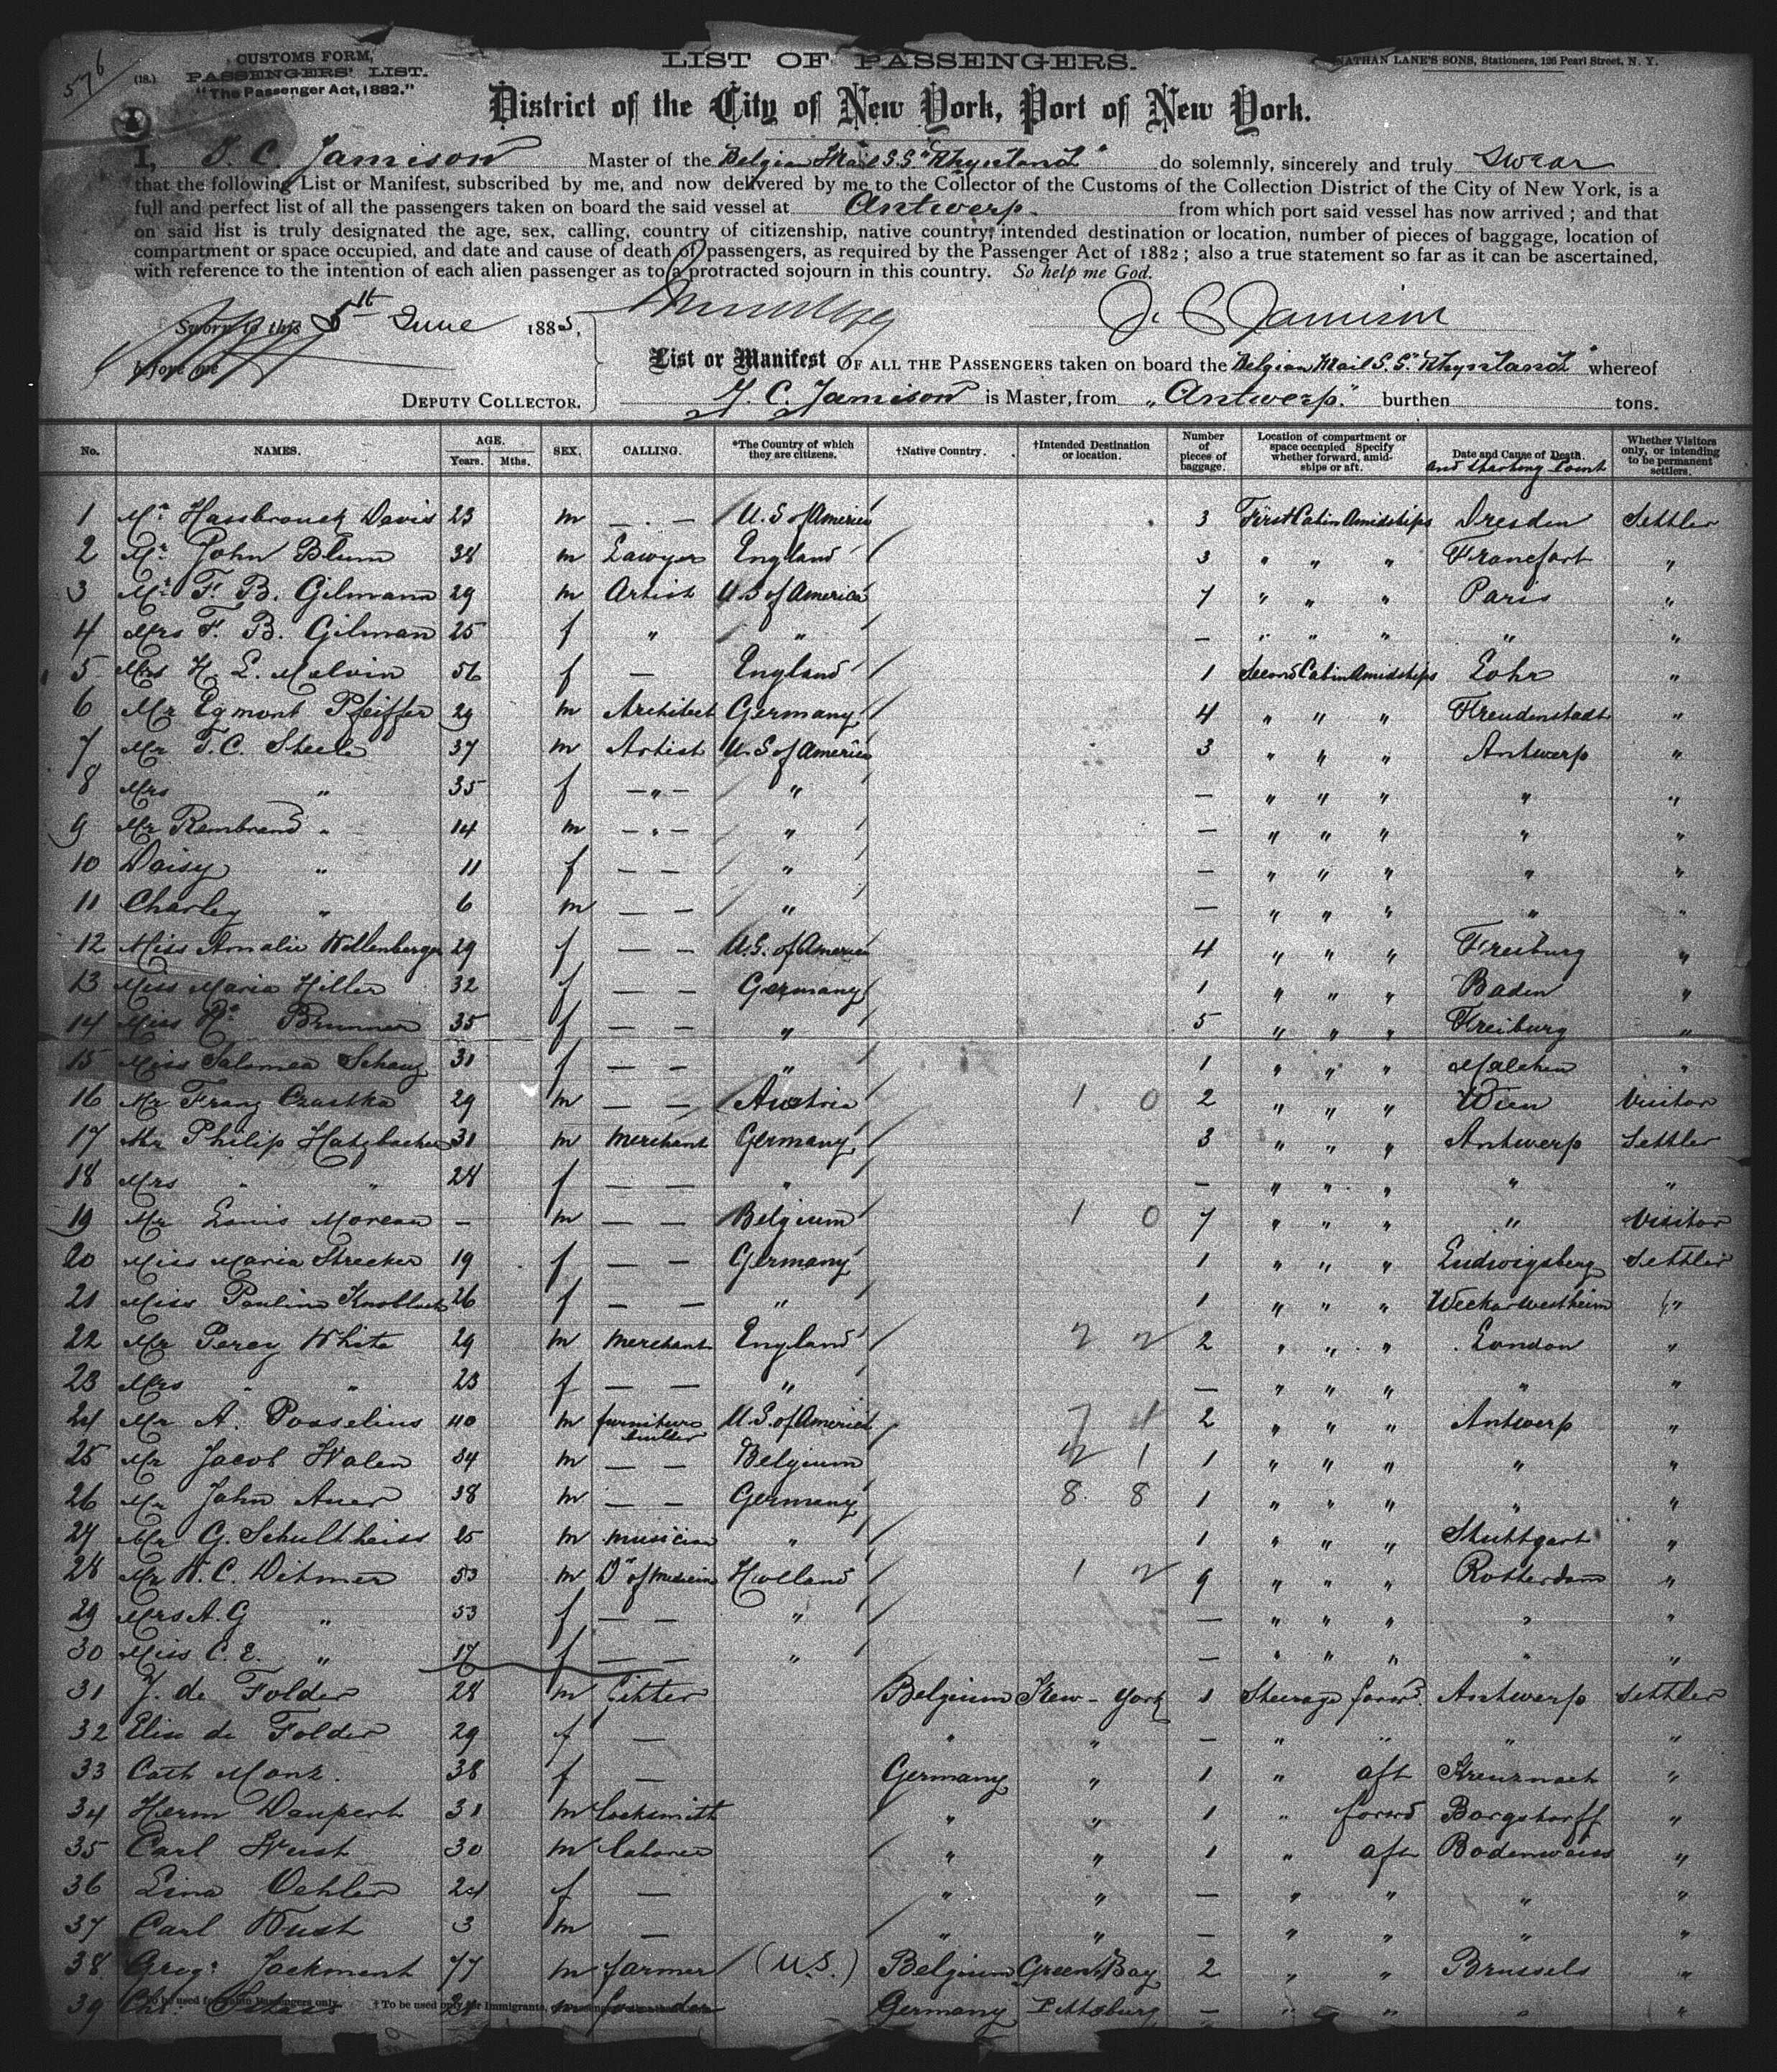 576
(18.)
CUSTOMS FORM,
PASSENGERS' LIST.
"The Passenger Act, 1882."
LIST OF PASSENGERS.
NATHAN LANE'S SONS, Stationers, 126 Pearl Street, N. Y.
District of the City of New York, Port of New York.
I, J. C. Jamison Master of the Belgian Mail S.S. "Rhynland" do solemnly, sincerely and truly swear
that the following List or Manifest, subscribed by me, and now delivered by me to the Collector of the Customs of the Collection District of the City of New York, is a
full and perfect list of all the passengers taken on board the said vessel at Antwerp. from which port said vessel has now arrived; and that
on said list is truly designated the age, sex, calling, country of citizenship, native country, intended destination or location, number of pieces of baggage, location of
compartment or space occupied, and date and cause of death of passengers, as required by the Passenger Act of 1882; also a true statement so far as it can be ascertained,
with reference to the intention of each alien passenger as to a protracted sojourn in this country. So help me God.
Sworn to this 5th June 1885,
J. C. Jamison
before me
List or Manifest OF ALL THE PASSENGERS taken on board the Belgian Mail S.S. "Rhynland" whereof
DEPUTY COLLECTOR.
J. C. Jamison is Master, from "Antwerp." burthen tons.
No. NAMES. AGE. Years. Mths. SEX. CALLING. *The Country of which they are citizens. †Native Country. †Intended Destination or location. Number of pieces of baggage. Location of compartment or space occupied Specify whether forward, amidships or aft. Date and Cause of Death. and Starting Point Whether Visitors only, or intending to be permanent settlers.
1 Mr Hassbrouck Davis 23 m — . — U.S of America 3 First Cabin Amidships Dresden Settler
2 Mr John Blum 38 m Lawyer England 3 " " " Francfort "
3 Mr F. B. Gilmann 29 m Artist U.S of America 7 " " " Paris "
4 Mrs F. B. Gilman 25 f " " — " " " " "
5 Mrs H. E. Malvin 56 f — England 1 Second Cabin Amidships Lohr "
6 Mr Egmont Pfeiffer 29 m Architect Germany 4 " " " Freudenstadt "
7 Mr T. C. Steele 37 m Artist U.S of America 3 " " " Antwerp "
8 Mrs " 35 f — " — " — " " " " "
9 Mr Rembrand " 14 m — " — " — " " " " "
10 Daisy " 11 f — — " — " " " " "
11 Charley " 6 m — — " — " " " " "
12 Miss Amalie Wellenberger 29 f — — U.S. of America 4 " " " Freiburg "
13 Miss Maria Hiller 32 f — — Germany 1 " " " Baden "
14 Miss Brunner 35 f — — " 5 " " " Freiburg "
15 Miss Salomea Schanz 31 f — — " 1 " " " Malchen "
16 Mr Franz 29 m — — Austria 1 0 2 " " " Wien Visitor
17 Mr Philip Hatzbacher 31 m Merchant Germany 3 " " " Antwerp Settler
18 Mrs " " 28 f — — " — " " " " "
19 Mr Louis Moreau — m — — Belgium 1 0 7 " " " " Visitor
20 Miss Maria Strecker 19 f — — Germany 1 " " " Ludwigsberg Settler
21 Miss Pauline Knobloch 26 f — — " 1 " " " Neckarwestheim "
22 Mr Percy White 29 m Merchant England 2 2 2 " " " London "
23 Mrs " " 23 f — — " — " " " " "
24 Mr A. Posselius 40 m furniture builder U.S. of America 7 4 2 " " " Antwerp "
25 Mr Jacob Walen 34 m — — Belgium 2 1 1 " " " " "
26 Mr John Auer 38 m — — Germany 8 8 1 " " " " "
27 Mr G. Schultheiss 25 m Musician " 1 " " " Stuttgart "
28 Mr W. C. Ditmer 53 m Dr of Medicin Holland 1 2 9 " " " Rotterdam "
29 Mrs A. G " 53 f — — " — " " " " "
30 Miss C. E. " 17 f — — " — " " " " "
31 J. de Folder 28 m Citter Belgium New-York 1 Steerage forwd. Antwerp Settler
32 Elise de Folder 29 f — " " — " " " "
33 Cath Manz. 38 f — Germany " 1 " aft Kreuznach "
34 Herm Daupert 31 m Locksmith " " 1 " forwd Bargstorff "
35 Carl Wust 30 m Laborer " " 1 " aft Bodenweiss "
36 Lina Oehler 24 f — " " — " " " "
37 Carl Wust 3 m — " " — " " " "
38 Greg. Jackment 77 m farmer (U.S.) Belgium Green Bay 2 " " Brussels "
39 m Germany Pittsburg — " " " "
*To be used for Cabin Passengers only. †To be used only for Immigrants,